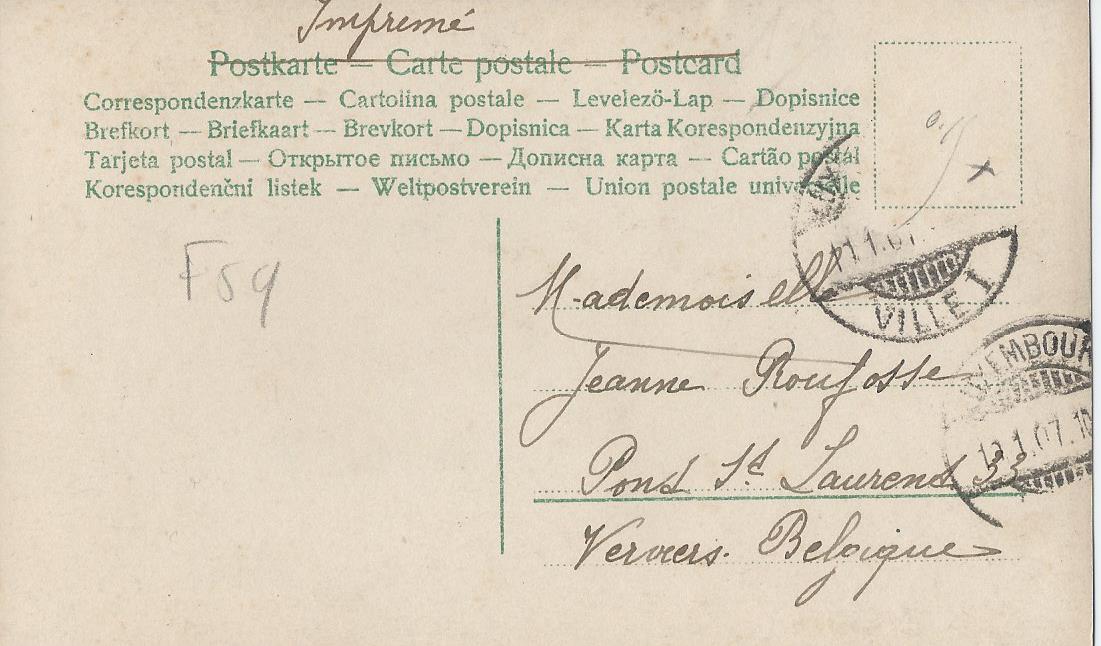 Imprimé
Postkarte — Carte postale — Postcard
Correspondenzkarte — Cartolina postale — Levelezö-Lap — Dopisnice
Brefkort — Briefkaart — Brevkort — Dopisnica — Karta Korespondenzyjna
Tarjeta postal — Открытое письмо — Дописна карта — Cartão postal
Korespondenčni listek — Weltpostverein — Union postale universelle
F59
Mademoiselle
Jeanne Roufosse
Pond St. Laurend 33
Verviers. Belgique
11.1.07
VILLE 1
LUXEMBOUR
1.07.10